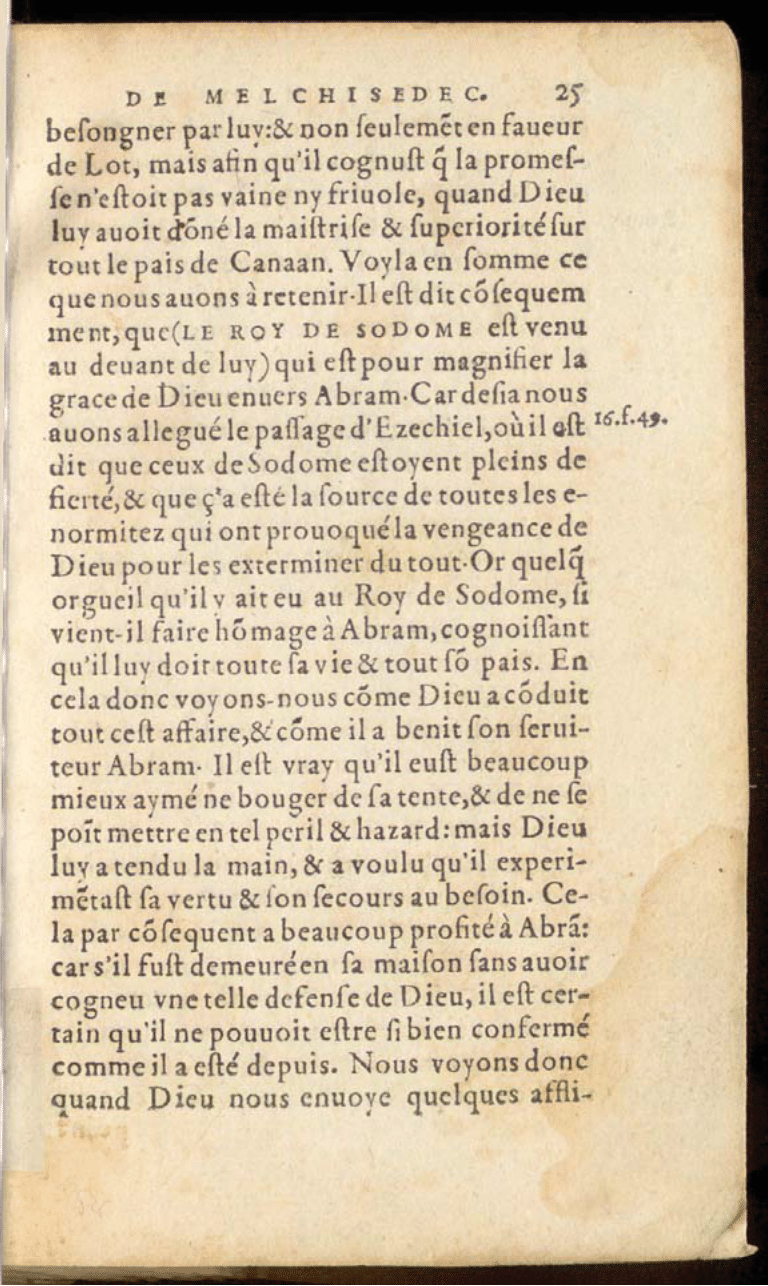 DE MELCHISEDEC. 25
beſongner par luy:& non ſeulemẽt en faueur
de Lot, mais afin qu'il cognuſt q̃ la promeſ-
ſe n'eſtoit pas vaine ny friuole, quand Dieu
luy auoit dõné la maiſtriſe & ſuperiorité ſur
tout le pais de Canaan. Voyla en ſomme ce
que nous auons à retenir. Il eſt dit cõſequem
ment, que (LE ROY DE SODOME eſt venu
au deuant de luy) qui eſt pour magnifier la
grace de Dieu enuers Abram. Car deſia nous
auons allegué le paſſage d'Ezechiel, où il eſt 16.f.49.
dit que ceux de Sodome eſtoyent pleins de
fierté, & que ç'a eſté la ſource de toutes les e-
normitez qui ont prouoqué la vengeance de
Dieu pour les exterminer du tout. Or quelq̃
orgueil qu'il y ait eu au Roy de Sodome, ſi
vient-il faire hõmage à Abram, cognoiſſant
qu'il luy doit toute ſa vie & tout ſõ pais. En
cela donc voyons-nous cõme Dieu a cõduit
tout ceſt affaire, & cõme il a benit ſon ſerui-
teur Abram. Il eſt vray qu'il euſt beaucoup
mieux aymé ne bouger de ſa tente, & de ne ſe
poĩt mettre en tel peril & hazard: mais Dieu
luy a tendu la main, & a voulu qu'il experi-
mẽtaſt ſa vertu & ſon ſecours au beſoin. Ce-
la par cõſequent a beaucoup profité à Abrã:
car s'il fuſt demeuré en ſa maiſon ſans auoir
cogneu vne telle defenſe de Dieu, il eſt cer-
tain qu'il ne pouuoit eſtre ſi bien confermé
comme il a eſté depuis. Nous voyons donc
quand Dieu nous enuoye quelques affli-